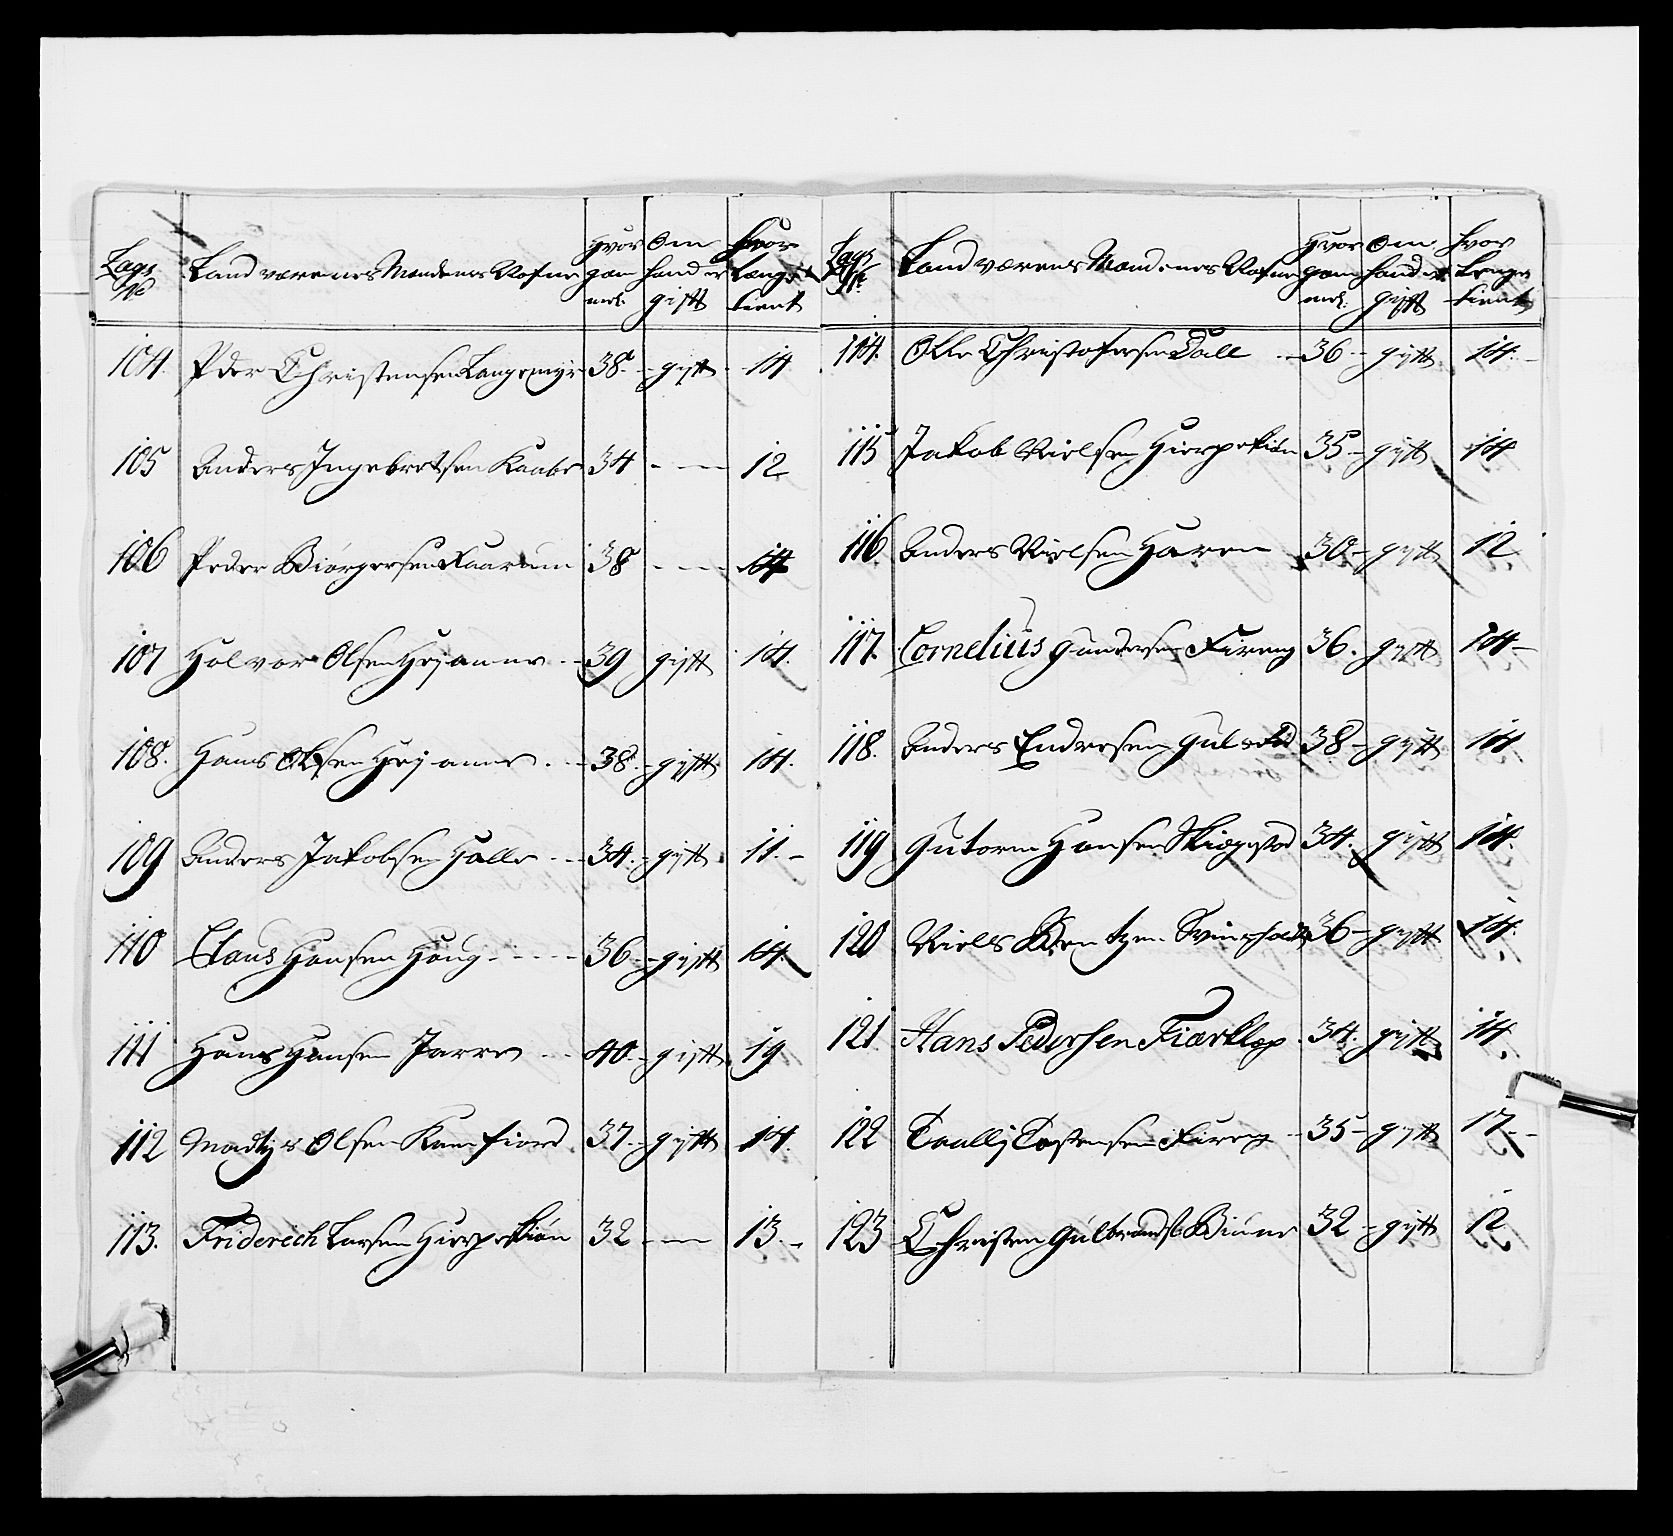 Lags No Land værenes Mandenes Nafne Hvor gam mel. Om hand er gift Hvor længe tient
104. Pder Christensen Langemyr 38. - gift - 14
105 Anders Ingebretsen Kaabe 34 - - - 12
106 Peder Biörgersen Aaarum 38 - - - 14
107 Halvor Olsen Hejanne - 39 gift 14.
108. Hans Olsen Hejanne - 38. - gift 14.
109 Anders Jakobsen Halle - - 34. - gift 11. -
110 Claus Hansen Haug - - - - 36. - gift 14
111 Hans Hansen Jarre - - 40. - gift 19
112 Madtz Olsen Kamfiord 37. - gift 14.
113. Friderich Larsen Hierpekiön 32 - - 13. -
Lags No Land værens Mandenes Nafne Hvor gam mel: Om hand er gift Hvor lenge tient
114. Olle Christofersen Dall - 36 - gift 14. -
115 Jakob Nielsen Hierpekiön 35 - gift 14
116. Anders Nielsen Haren 30 - gift 12
117. Cornelius Gundersen Fireng 36. gift 14 -
118. Anders Endresen 38 - gift 14
119 Gutorm Hansen Skiægestad 34. gift 14.
120 Niels Bentzen Svinsholt 36 - gift 14.
121 Hans Pedersen Fiærklep - 34. gift 14.
122 Tostensen - 35 - gift 17. -
123 Christen Gulbrands. 32 - gift 12